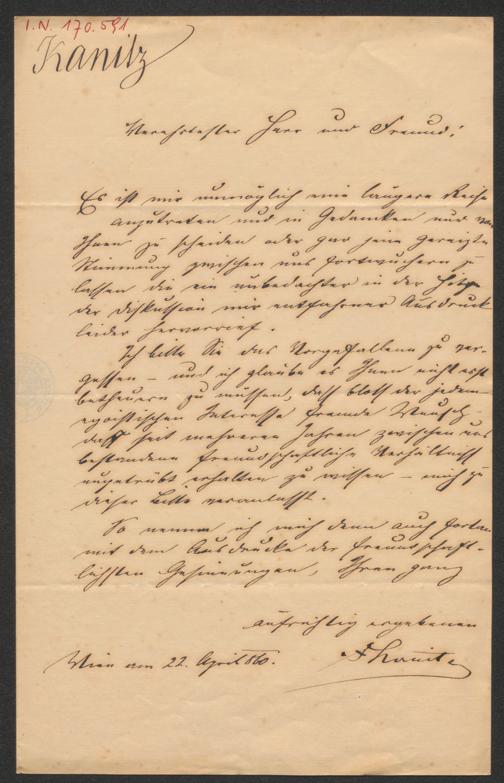 I.N. 170.591
Kanitz
Verehrtester Herr und Freund!
Es ist mir unmöglich eine längere Reise
anzutreten und in Gedanken nur von
Ihnen zu scheiden oder gar jene gereizte
Stimmung zwischen uns fortwuchern zu
lassen die ein unbedachter in der Hitze
der Diskussion mir entfahrener Ausdruck
leider hervorrief.
Ich bitte Sie das Vorgefallene zu ver-
gessen – und ich glaube es Ihnen nicht erst
betheuern zu müssen, daß bloß der jedem
egoistischen Interesse fremde Wunsch –
das seit mehreren Jahren zwischen uns
bestandene freundschaftliche Verhältniß
ungetrübt erhalten zu wissen – mich zu
dieser Bitte veranlaßt.
So nenne ich mich denn auch fortan
mit dem Ausdrucke der freundschaft-
lichsten Gesinnungen, Ihren ganz
aufrichtig ergebenen
Wien am 22. April 860.
F Kanitz